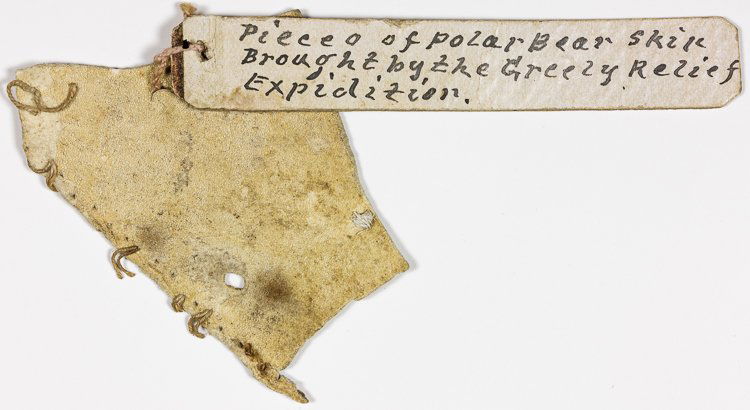 Pieceo of polar Bear skin
Brought by the Greely Relief
Expidition.